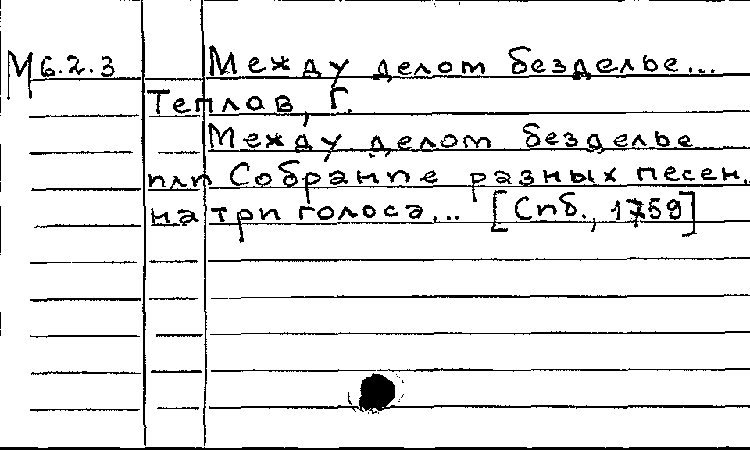 М6.2.3 Между делом безделье...
Теплов, Г.
Между делом безделье
или Собрание разных песен.
на три голоса... [Спб., 1759]